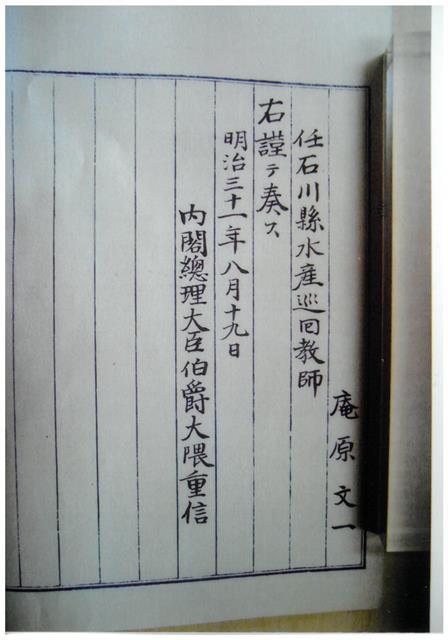 庵原文一
任石川縣水産巡回教師
右謹テ奏ス
明治三十一年八月十九日
内閣總理大臣伯爵大隈重信